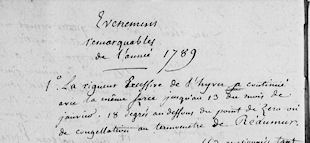 Evenemens
remarquables
de l'année 1789
1° La rigueur Excessive de l'hyver a continué
avec la même force jusqu'au 13 du mois de
janvier. 18 degrés au dessous du point de Zero ou
de congellation au termometre de Réaumur.
tant